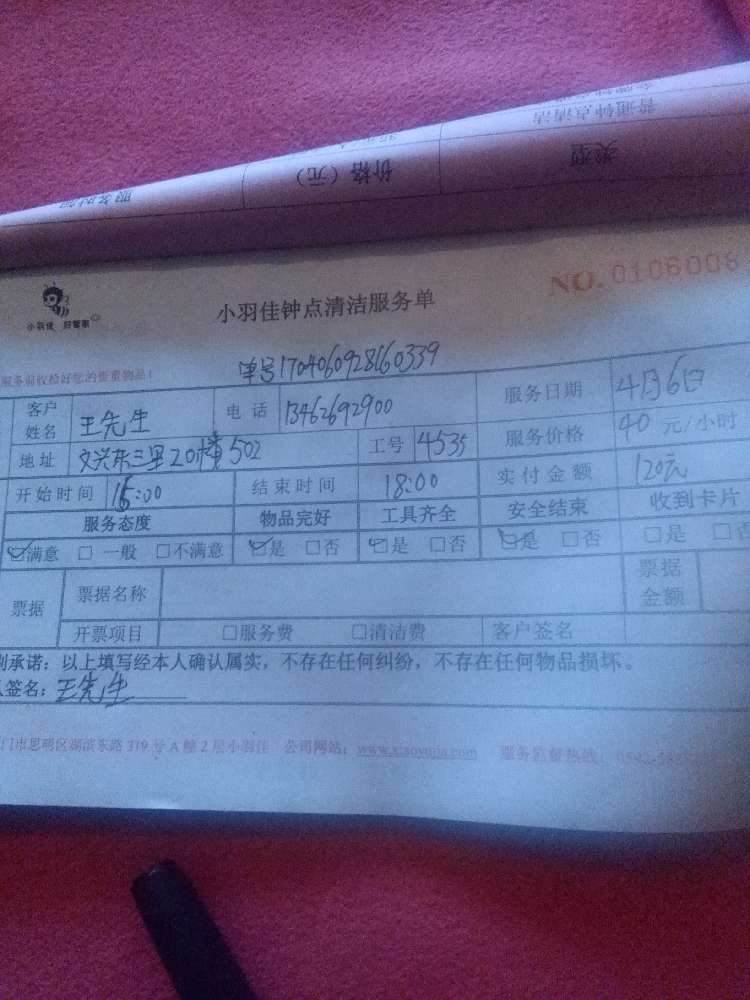 普通钟点清洁
类型
价格（元）
服务时间
小羽佳 好管家
小羽佳钟点清洁服务单
NO. 0106006
服务前收检好您的贵重物品！
单号1704060928160339
客户姓名 王先生 电话 13462692900 服务日期 4月6日
地址 文兴东三里20幢502 工号 4535 服务价格 40 元/小时
开始时间 15:00 结束时间 18:00 实付金额 120元
服务态度 物品完好 工具齐全 安全结束 收到卡片
☑满意 □一般 □不满意 ☑是 □否 ☑是 □否 ☑是 □否 □是 □否
票据 票据名称 票据金额
开票项目 □服务费 □清洁费 客户签名
承诺：以上填写经本人确认属实，不存在任何纠纷，不存在任何物品损坏。
签名：王先生
门市思明区湖滨东路 319 号 A 幢 2 层小羽佳 公司网站：www.xiaoyujia.com 服务监督热线：0592-